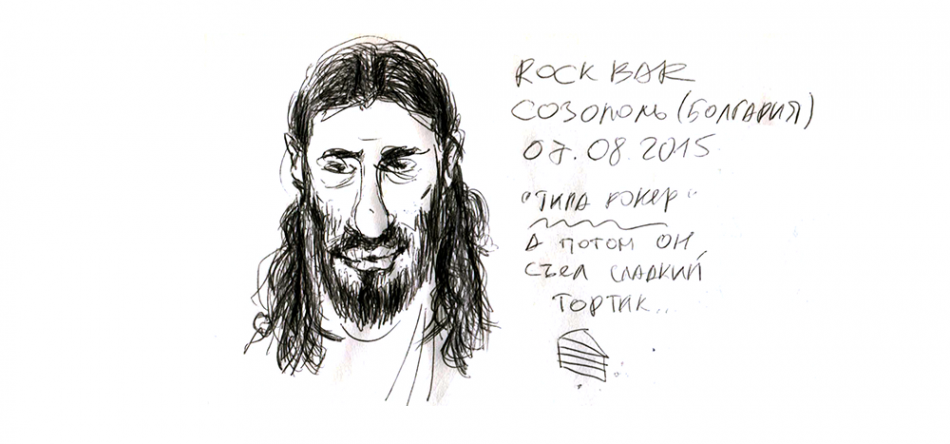 ROCK BAR
СОЗОПОЛЬ (БОЛГАРИЯ)
07.08.2015
"ТИПА РОКЕР"
А ПОТОМ ОН,
СЪЕЛ СЛАДКИЙ
ТОРТИК...